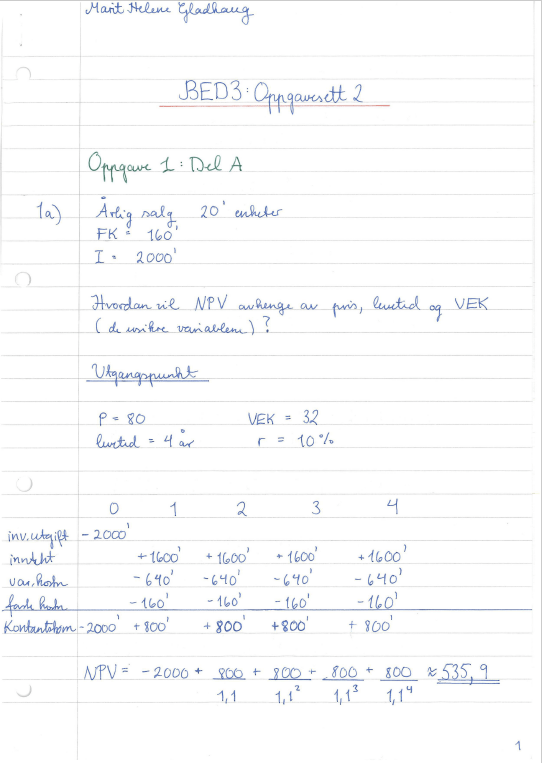 Marit Helene Gladhaug
BED3: Oppgavesett 2
Oppgave 1: Del A
1a) Årlig salg 20' enheter
FK = 160'
I = 2000'
Hvordan vil NPV avhenge av pris, levetid og VEK
(de usikre variablene)?
Utgangspunkt
P = 80 VEK = 32
levetid = 4 år r = 10%
0 1 2 3 4
inv.utgift -2000'
inntekt +1600' +1600' +1600' +1600'
var.kostn -640' -640' -640' -640'
faste kostn -160' -160' -160' -160'
Kontantstrøm -2000' +800' +800' +800' +800'
NPV = -2000 + 800 + 800 + 800 + 800 ≈ 535,9
1,1 1,1² 1,1³ 1,1⁴
1